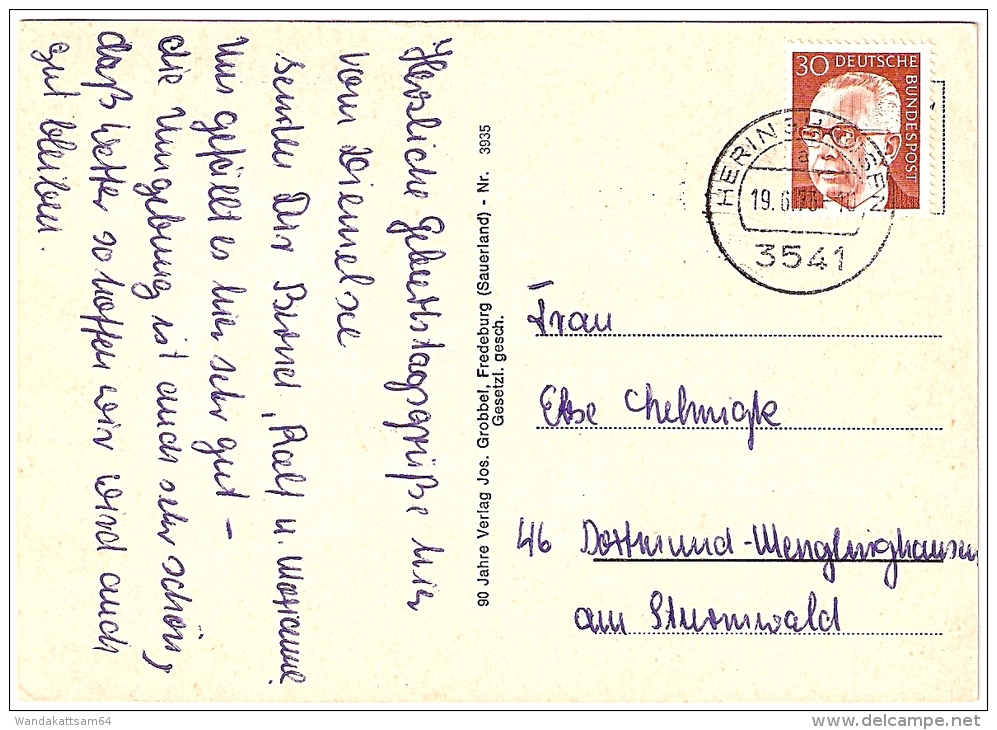 Herzliche Geburtstagsgrüße hier
vom Diemelsee
senden Dir Bernd, Ralf u. Marianne
Uns gefällt es hier sehr gut –
die Umgebung ist auch sehr schön,
daß Wetter so hoffen wir wird auch
gut bleiben.
90 Jahre Verlag Jos. Grobbel, Fredeburg (Sauerland) - Nr. 3935
Gesetzl. gesch.
30 DEUTSCHE
BUNDESPOST
HERINGHAUSEN
a
19.6.73
3541
Frau
Else
46 Dortmund-Menglinghausen
am Sturmwald
Wandakattsam64
delcampe.net